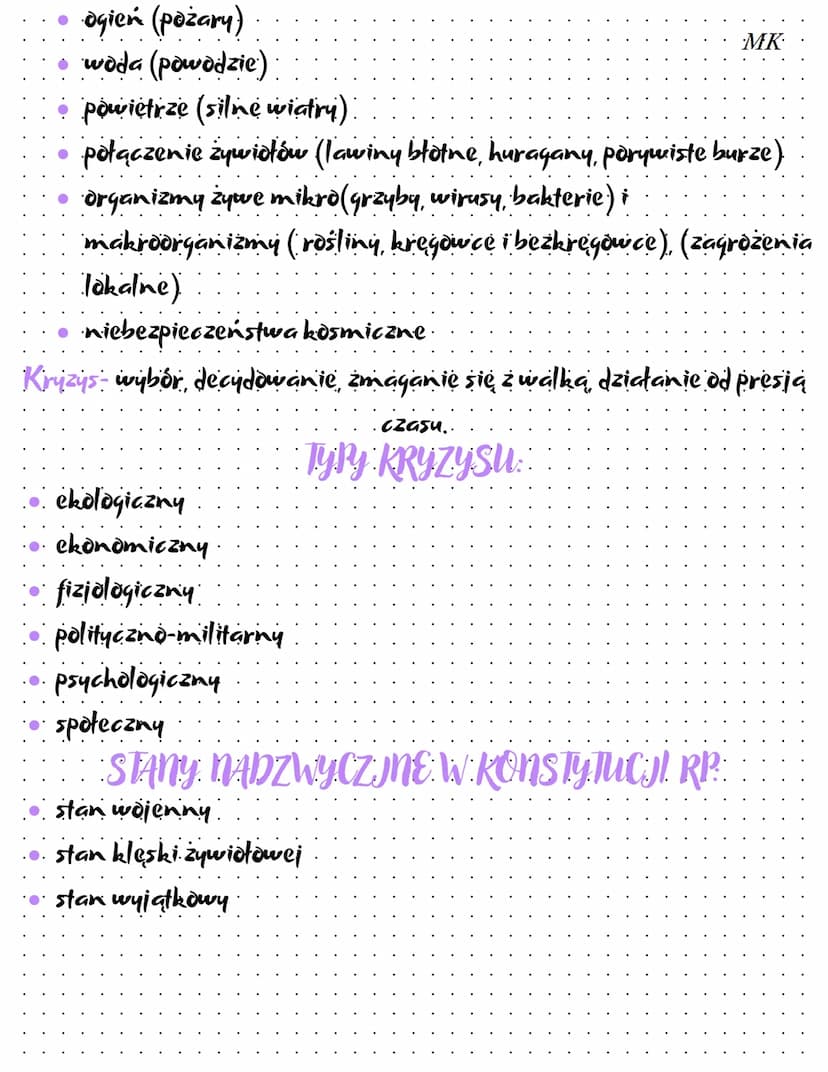 • ogień (pożary)
MK
• woda (powodzie)
• powietrze (silne wiatry)
• połączenie żywiołów (lawiny błotne, huragany, porywiste burze)
• organizmy żywe mikro(grzyby, wirusy, bakterie) i
makroorganizmy ( rośliny, kręgowce i bezkręgowce), (zagrożenia
lokalne)
• niebezpieczeństwa kosmiczne
Kryzys- wybór, decydowanie, zmaganie się z walką, działanie od presją
czasu.
TYPY KRYZYSU:
• ekologiczny
• ekonomiczny
• fizjologiczny
• polityczno-militarny
• psychologiczny
• społeczny
STANY NADZWYCZJNE W KONSTYTUCJI RP:
• stan wojenny
• stan klęski żywiołowej
• stan wyjątkowy